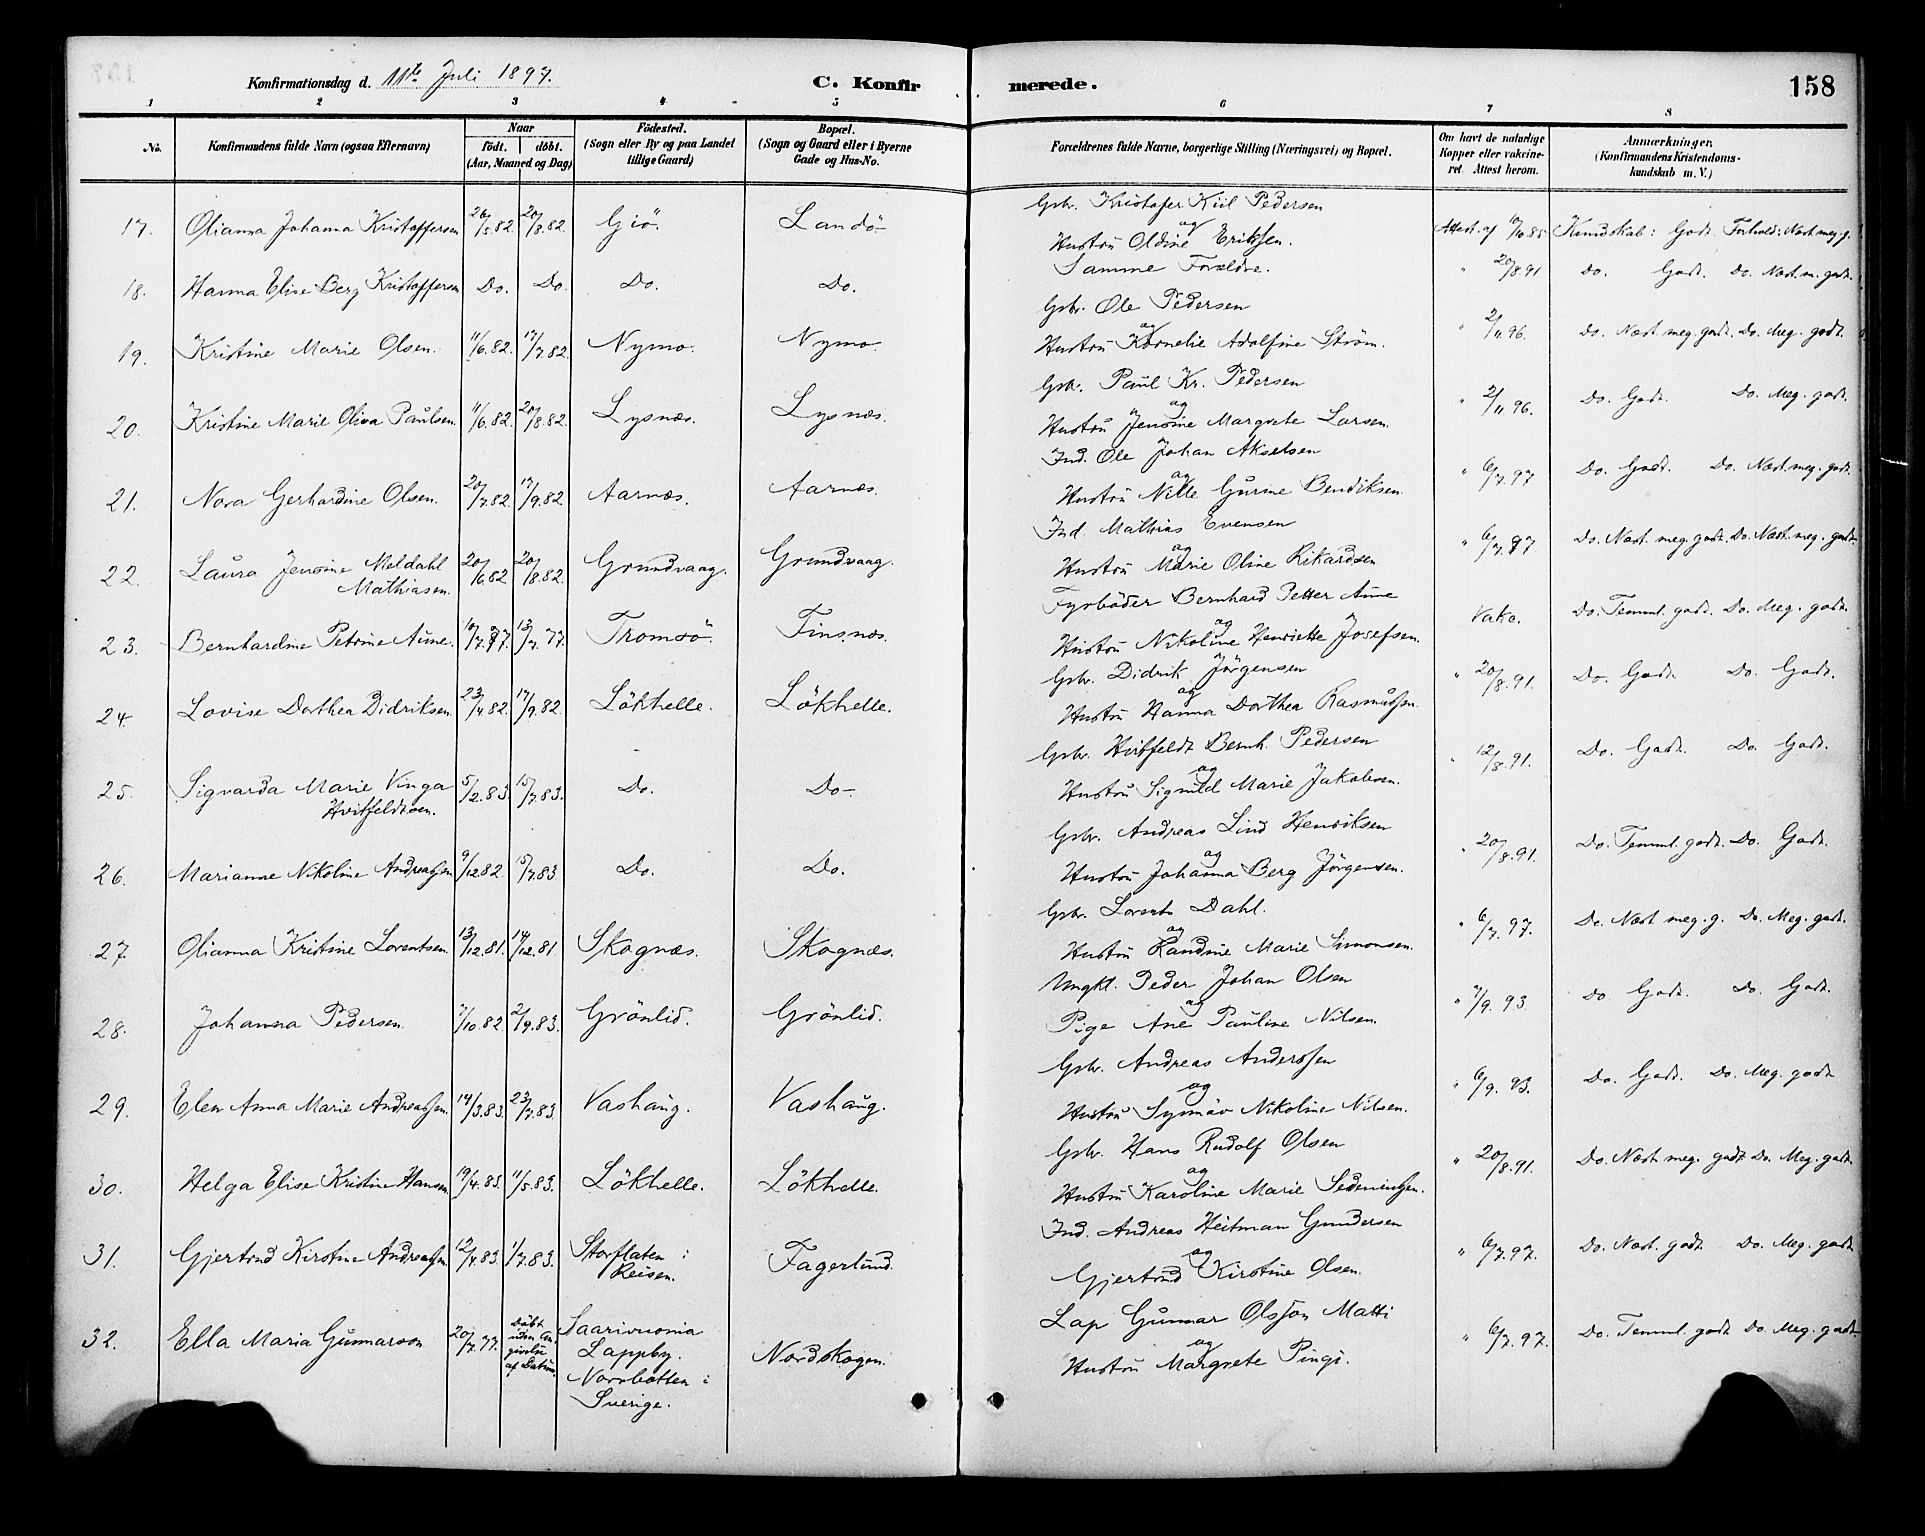 Konfirmationsdag d. 11te Juli 1897. C. Konfirmerede. 158
1 2 3 4 5 6 7 8
No. Konfirmandens fulde Navn (ogsaa Efternavn) Naar födt. döbt. (Aar, Maaned og Dag) Födested. (Sogn eller By og paa Landet tillige Gaard) Bopæl. (Sogn og Gaard eller i Byerne Gade og Hus-No. Forældrenes fulde Navne, borgerlige Stilling (Næringsvei) og Bopæl. Om havt de naturlige Kopper eller vakcineret. Attest herom. Anmærkninger. (Konfirmandens Kristendomskundskab m. V.)
17. Olianna Johanna Kristoffersen 26/5.82. 20/8.82. Gjö. Landö Gbr. Kristofer Kiil Pedersen
og Hustru Oldine Eriksen. Attest af 10/10.85 Kundskab: Godt. Forhold: Næst meg. g.
18. Hanna Elise Berg Kristoffersen Do. Do. Do. Do. Samme Forældre. " 20/8.91 Do. Godt. Do. Næst m. godt.
19. Kristine Marie Olsen. 11/6.82. 17/7.82. Nymo. Nymo. Gbr. Ole Pedersen
og Hustru Kornelie Adolfine Ström. " 2/11 96. Do. Næst meg. godt. Do. Meg. godt.
20. Kristine Marie Oliva Paulsen. 11/6.82. 20/8.82. Lysnæs. Lysnæs. Gbr. Paul Kr. Pedersen
og Hustru Jensine Margrete Larsen. " 2/11 96. Do. Godt. Do. Meg. godt.
21. Nora Gerhardine Olsen. 20/7.82. 17/9.82. Aarnæs. Aarnæs. Ind. Ole Johan Akselsen
og Hustru Nille Gurine Bendiksen. " 6/7.97 Do. Godt. Do. Næst. meg. godt.
22. Laura Jensine Meldahl Mathiasen. 20/6.82 20/8.82. Grundvaag. Grundvaag. Ind. Mathias Evensen
og Hustru Marie Oline Rikardsen " 6/7.97 Do. Næst. meg. godt. Do. Næst. meg. godt.
23. Bernhardine Petrine Aune. 10/7.77. 13/7.77. Tromsö. Finsnæs. Fyrböder Bernhard Petter Aune
og Hustru Nikoline Henriette Josefsen. Vakc. Do. Temml. godt. Do. Meg. godt.
24. Lovise Dorthea Didriksen. 23/4.82. 17/9.82. Lökhelle. Lökhelle. Gbr. Didrik Jörgensen
og Hustru Hanna Dorthea Rasmussen. " 20/8.91. Do. Godt. Do. Godt.
25. Sigvarda Marie Vinga Hvitfeldtsen. 5/2.83. 15/7.83. Do. Do. Gbr. Hvitfeldt Bernh. Pedersen
og Hustru Signild Marie Jakobsen. " 12/8.91. Do. Godt. Do. Godt.
26. Marianne Nikoline Andreassen 9/12 82. 15/7.83 Do. Do. Gbr. Andreas Lind Henriksen
og Hustru Johanna Berg Jörgensen. " 20/8.91. Do. Temml. godt. Do. Godt.
27. Olianna Kristine Lorentsen. 13/12.81. 14/12.81 Skognæs. Skognæs. Gbr. Lorents Dahl.
og Hustru Randine Marie Simonsen. " 6/7.97. Do. Næst meg. g. Do. Meg. godt.
28. Johanna Pedersen. 7/10.82. 2/9.83. Grönlid. Grönlid. Ungkl. Peder Johan Olsen
og Pige Ane Pauline Nilsen. " 7/9.93. Do Godt. Do. Godt.
29. Elen Anna Marie Andreassen. 14/3.83. 23/7.83. Vashaug. Vashaug. Gbr. Andreas Anderssen
og Hustru Synnäv Nikoline Nilsen. " 6/9.93. Do. Godt. Do. Meg. godt
30. Helga Elise Kristine Hansen. 19/4.83. 11/5.83. Lökhelle. Lökhelle. Gbr. Hans Rudolf Olsen
og Hustru Karoline Marie " 20/8.91. Do. Næst meg. godt Do. Meg. godt.
31. Gjertrud Kirstine Andreassen 12/4.83. 1/7.83. Storflaten i Reisen. Fagerlund. Ind. Andreas Heitman Gundersen
og Gjertrud Kirstine Olsen. " 6/7.97. Do. Næst. godt Do. Meg. godt.
32. Ella Maria Gunnarson 20/7.77. Döbt uden Angivelse af Datum. Saarivuonia Lappby. Norrbotten i Sverige. Nordskogen. Lap Gunnar Olsson Matti
og Hustru Margrete Pingi. " 6/7.97. Do. Temml. godt Do. Meg. godt